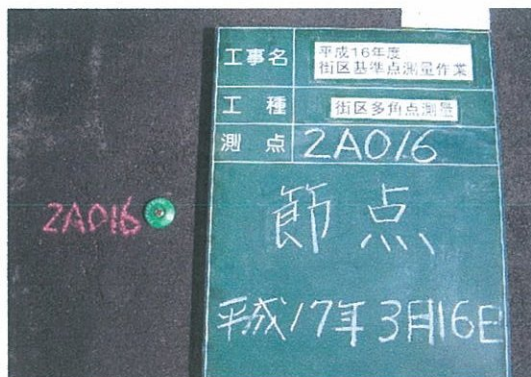 工事名 平成16年度
街区基準点測量作業
工種 街区多角点測量
測点 2A016
2A016
節点
平成17年3月16日